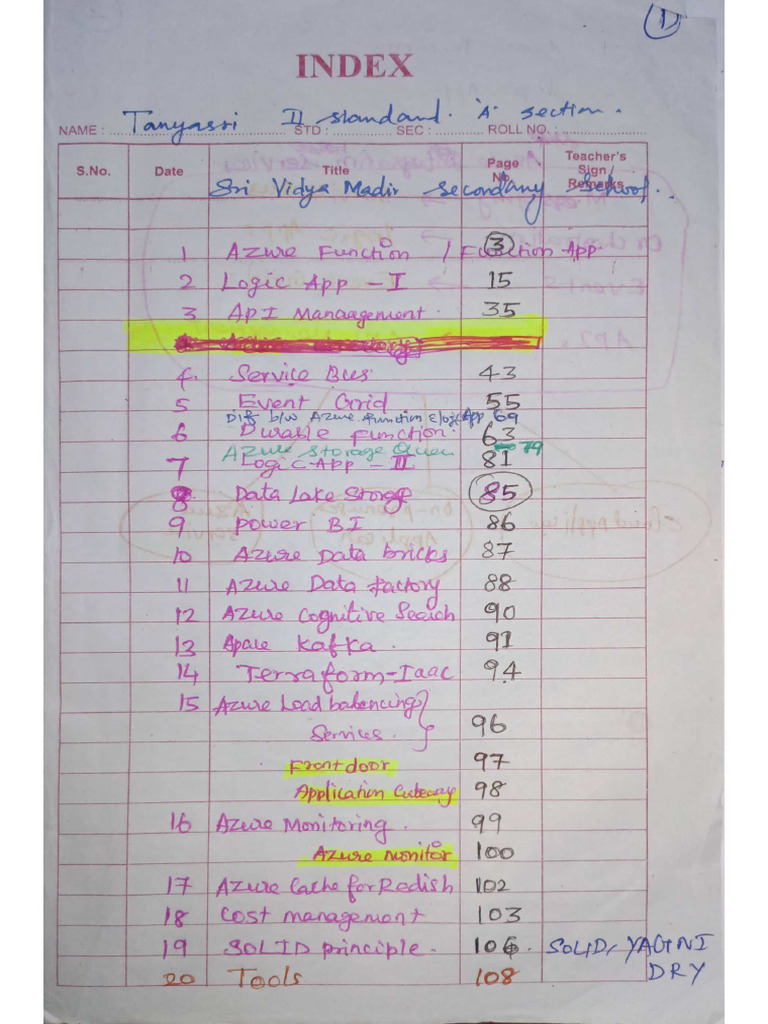 1
INDEX
Tanyasri II standard. 'A' section.
NAME : STD : SEC : ROLL NO. :
S.No. Date Title Page No. Teacher's Sign / Remarks
Sri Vidya Madir secondany school..
1 Azure Function / Function App 3
2 Logic App - I 15
3 API Manaagement. 35
4. Service Bus 43
5 Event Grid 55
Diff b/w Azure function & logic App 69
6 Durable Function. 63
Azure Storage Queu 79
7 Logic App - II 81
8 Data Lake Storge 85
9 Power BI 86
10 Azure Data bricks 87
11 Azure Data factory 88
12 Azure Cognitive Search 90
13 Apace Kafka. 91
14 Terraform-Iaac 94
15 Azure Load balancing
Services. 96
Front door 97
Application Gateway 98
16 Azure Monitoring. 99
Azure monitor 100
17 Azure Cache for Redish 102
18 Cost management 103
19 SOLID principle. 106. SOLID, YAGNI
DRY
20 Tools 108